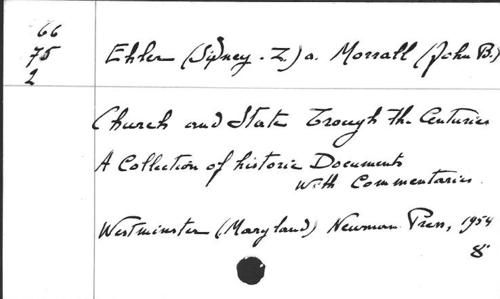 66
75
2
Ehler (Sidney . Z.) a. Morrall (John B.)
Church and State Trough the Centuries
A Collection of historic Documents
With Commentaries.
Westminster (Maryland) Newman Press, 1954
8°